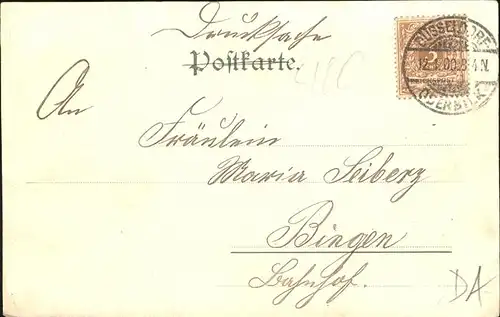 Drucksache
Postkarte.
DÜSSELDORF
12.1.00.3-4N.
OBERBILK
3
An
Fräulein
Maria Seiberz
Bingen
Bahnhof.
DA